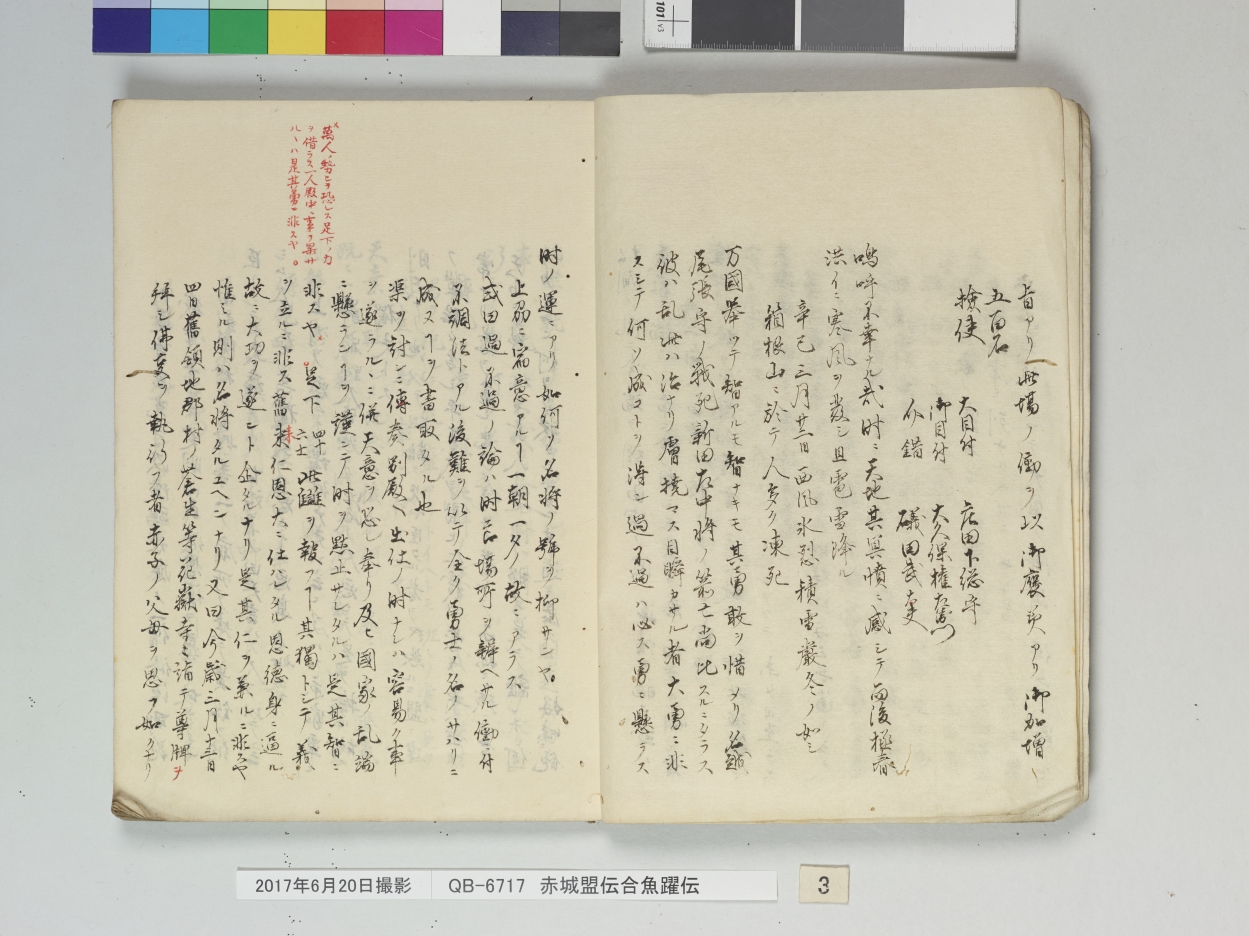 旨アリ此場ノ働ヲ以御褒美アリ御加増
五百石
検使 大目付 庄田下総守
御目付 大久保権左衛門
介錯 礒田武大夫
嗚呼不幸ナル哉時ニ天地其異憤ニ感シテ而後極春
洪イニ寒風ヲ発シ且雹雪降ル
辛巳三月廿五日西風氷烈積雪厳冬ノ如シ
箱根山ニ於テ人多ク凍死
万國挙ツテ智アルモ智ナキモ其勇敢ヲ惜メリ
尾張守ノ戦死新田左中将ノ亡尚比スルニタラス
彼ハ乱此ハ治ナリ膚撓マス目瞬カサル者大勇ニ非
スシテ何ソ成コトヲ得ン過不過ハ必ス勇ニ懸ラス
時ノ運ニアリ如何ソ名将ノ號ヲ抑サンヤ
上野ニ宿意アルヿ一朝一夕ノ故ニアラス
或曰過不過ノ論ハ時節場所ヲ辨ヘサル働ニ付
不調法トアル後難ヲ以テ全ク勇士ノ名ノサハリニ
成スヿヲ書取タル也
渠ヲ討ンニ傳奏別殿ヘ出仕ノ時ナレハ容易ク事
ヲ遂ラルヽニ併天意ヲ恐レ奉リ及ヒ國家ノ乱端
ニ懸ランヿヲ謹ンテ時ヲ黙止サレタルハ是其智ニ
非スヤ 足下 四十六士 此讎ヲ報フヿ其獨トシテ義
ヲ立ルニ非ス舊来仁恩大ニ仕ハレタル恩徳身ニ逼ル
故ニ大功ヲ遂ント企タルナリ是其仁ヲ兼ルニ非スヤ
惟ミル則ハ名将タルユヘンナリ又曰今歳三月十三日
四日舊領地郡村ノ蒼生等花嶽寺ニ詣テ尊牌ヲ
拜シ佛事ヲ執行フ者赤子ノ父母ヲ思フ如クナリ
萬人ノ勢ニテ恐レス足下ノ力
ヲ借ラス一人殿中ニ事ヲ果サ
ルヽハ是其勇ニ非スヤ。
101 V3
2017年6月20日撮影 QB-6717 赤城盟伝合魚躍伝
3